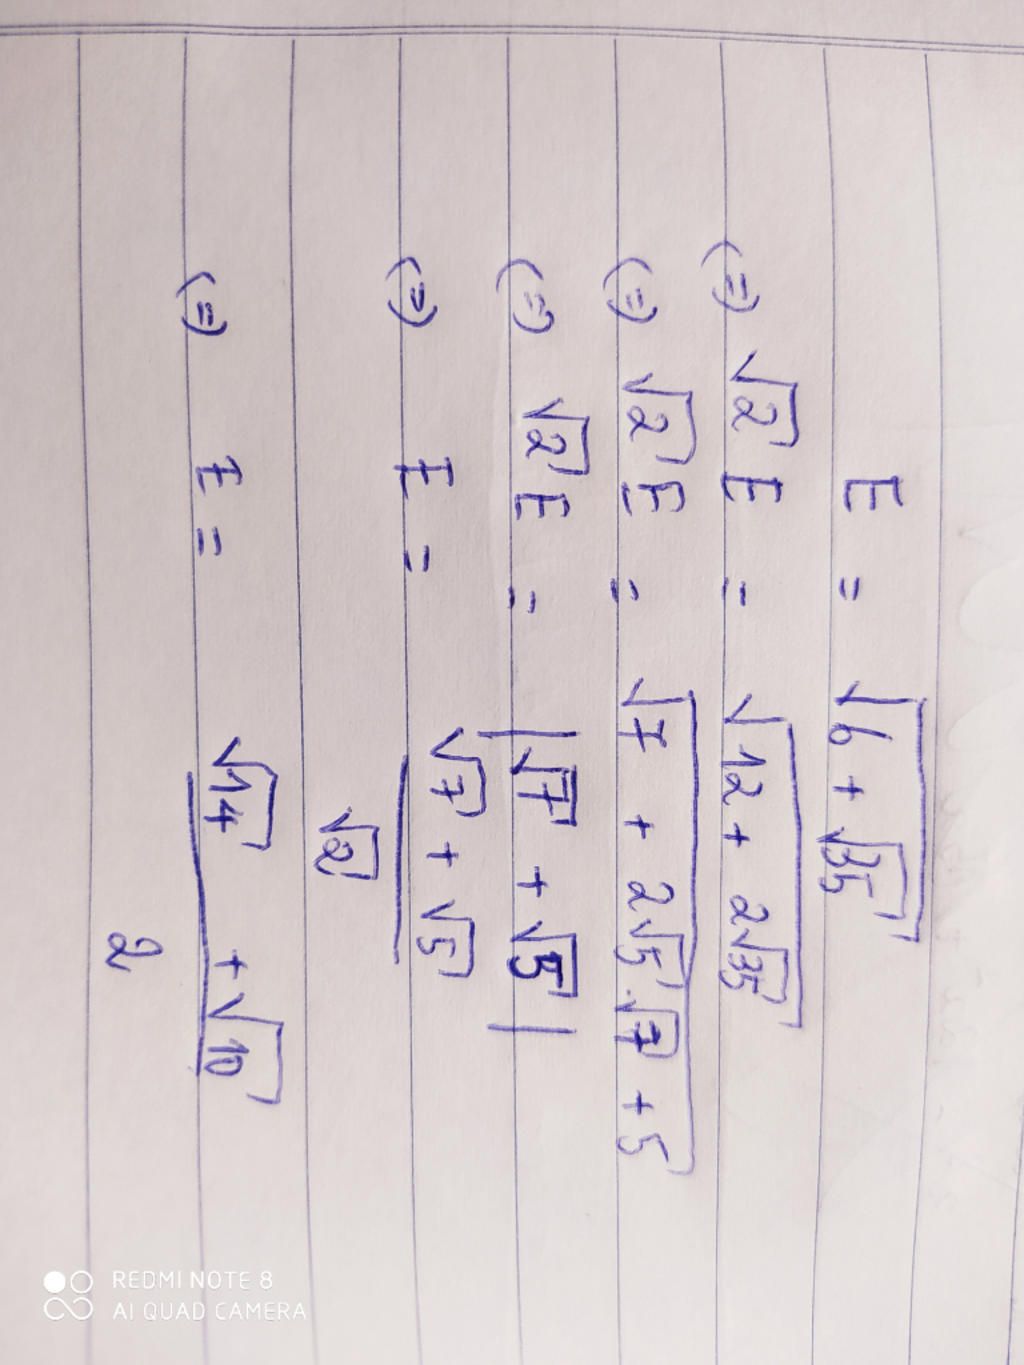 E = √(6 + √35)
(=) √2 E = √(12 + 2√35)
(=) √2 E = √(7 + 2√5.√7 + 5)
(=) √2 E = |√7 + √5|
(=) E = (√7 + √5)/√2
(=) E = (√14 + √10)/2
REDMI NOTE 8
AI QUAD CAMERA